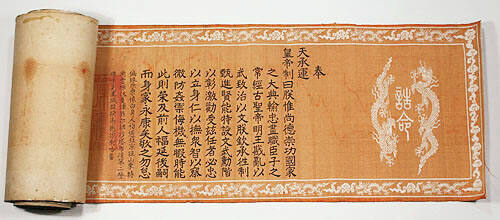 誥命
奉
天承運
皇帝制曰朕惟尚德崇功國家
之大典輸忠盡職臣子之
常經古聖帝明王戡亂以
武致治以文朕欽承往制
甄進賢能特設文武勳階
以彰激勸受兹任者必忠
以立身仁以撫衆智以察
微防姦禦侮機無暇時能
此則榮及前人福延後嗣
而身家永康矣敬之勿怠